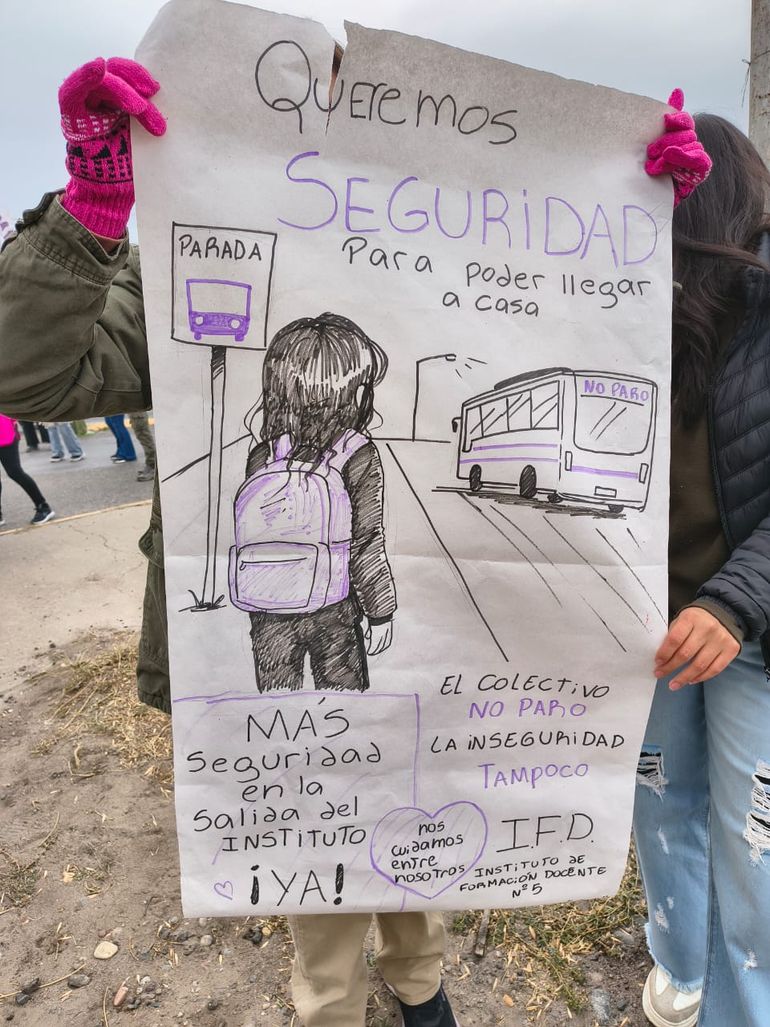 Queremos
SEGURIDAD
Para poder llegar
a casa
PARADA
NO PARO
EL COLECTIVO
NO PARO
LA INSEGURIDAD
TAMPOCO
MÁS
Seguridad
en la
Salida del
INSTITUTO
¡YA!
nos
cuidamos
entre
nosotros
I.F.D.
INSTITUTO DE
FORMACIÓN DOCENTE
Nº5